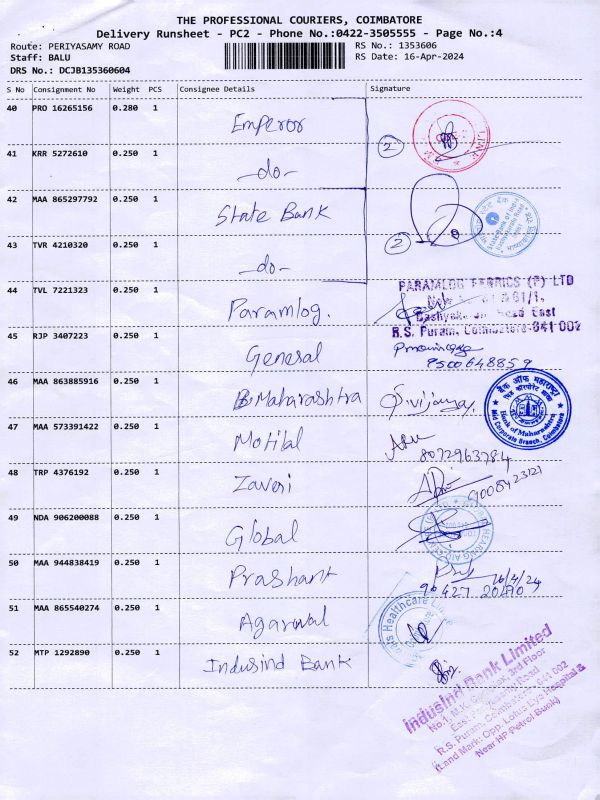 THE PROFESSIONAL COURIERS, COIMBATORE
Delivery Runsheet - PC2 - Phone No.:0422-3505555 - Page No.:4
Route: PERIYASAMY ROAD RS No.: 1353606
Staff: BALU RS Date: 16-Apr-2024
DRS No.: DCJB135360604
S No Consignment No Weight PCS Consignee Details Signature
40 PRO 16265156 0.280 1 Emperor
41 KRR 5272610 0.250 1 -do- 2
42 MAA 865297792 0.250 1 State Bank
43 TVR 4210320 0.250 1 -do- 2
44 TVL 7221323 0.250 1 Paramlog.
PARAMLOG FABRICS (P) LTD
R.S. Puram, Coimbatore-641 002
45 RJP 3407223 0.250 1 General
9500648859
46 MAA 863885916 0.250 1 B.Maharashtra
बैंक ऑफ महाराष्ट्र
Bank of Maharashtra
Mid Corporate Branch, Coimbatore
47 MAA 573391422 0.250 1 Motilal
8072963784
48 TRP 4376192 0.250 1 Zaveri
9008423121
49 NDA 906200088 0.250 1 Global
50 MAA 944838419 0.250 1 Prashant
16/4/24
51 MAA 865540274 0.250 1 Agarwal
52 MTP 1292890 0.250 1 Indusind Bank
IndusInd Bank Limited
R.S. Puram, Coimbatore - 641 002
(Land Mark: Opp. Lotus Eye Hospital &
Near HP Petrol Bunk)